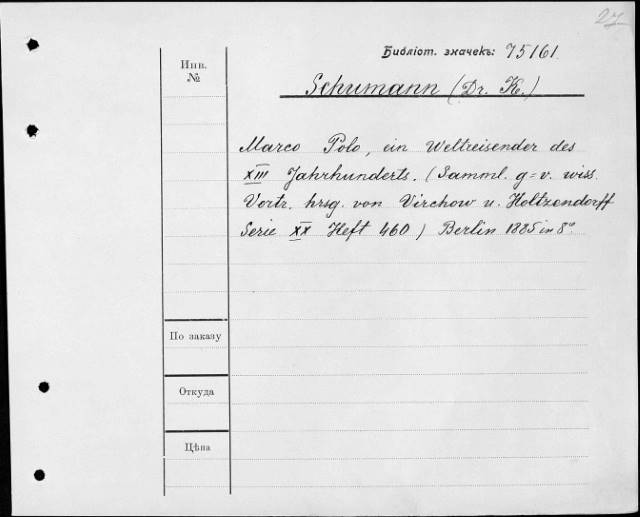 27
Библіот. значекъ: 75161
Инв.
№
Schumann (Dr. K.)
Marco Polo, ein Weltreisender des
XIII Jahrhunderts. (Samml. g=v. wiss.
Vortr. hrsg. von Virchow u. Holtzendorff
Serie XX Heft 460) Berlin 1885 in 8°
По заказу
Откуда
Цѣна